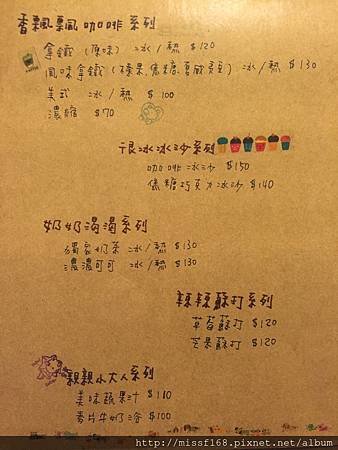 香飄飄咖啡系列
拿鐵(原味) 冰/熱 $120
風味拿鐵(榛果.焦糖.夏威夷豆) 冰/熱 $130
美式 冰/熱 $100
濃縮 $70
很冰冰沙系列
咖啡冰沙 $150
焦糖巧克力冰沙 $140
奶奶渴渴系列
獨家奶茶 冰/熱 $130
濃濃可可 冰/熱 $130
辣辣蘇打系列
草莓蘇打 $120
芒果蘇打 $120
親親小大人系列
美味蔬果汁 $110
麥片牛奶 $100
http://missf168.pixnet.net/album